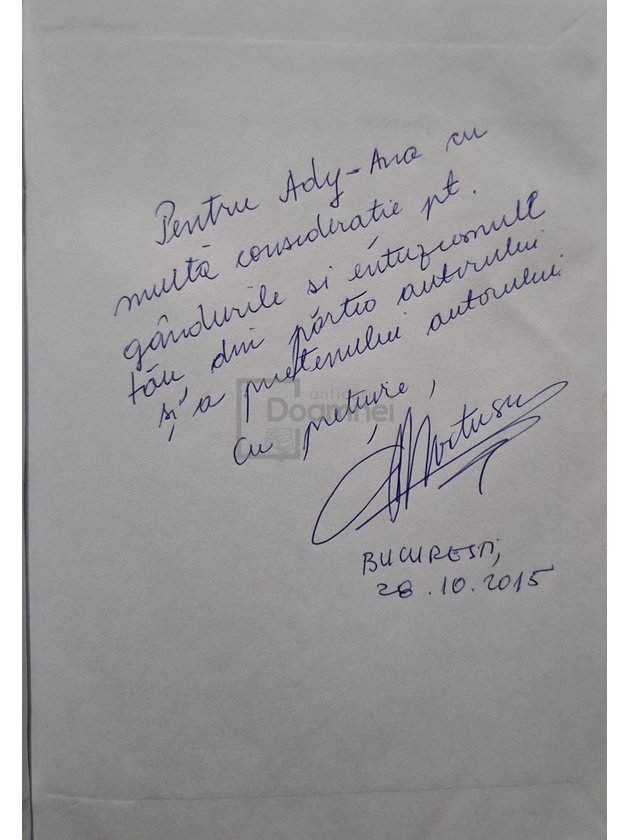 Pentru Ady-Ana cu
multă considerație pt.
gândurile si entuziasmul
tău din partea autorului
și a prietenului autorului
cu prețuire,
BUCUREȘTI,
28.10.2015
Doamnei